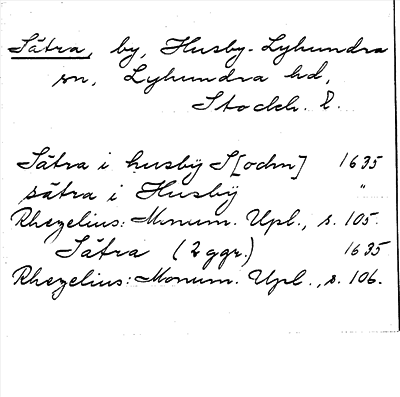 Sätra, by, Husby-Lyhundra
sn, Lyhundra hd,
Stockh. l.
Sätra i husbÿ S[ochn] 1635
sätra i Husbÿ "
Rhezelius: Monum. Upl., s. 105.
Sätra (2 ggr.) 1635
Rhezelius: Monum. Upl., s. 106.